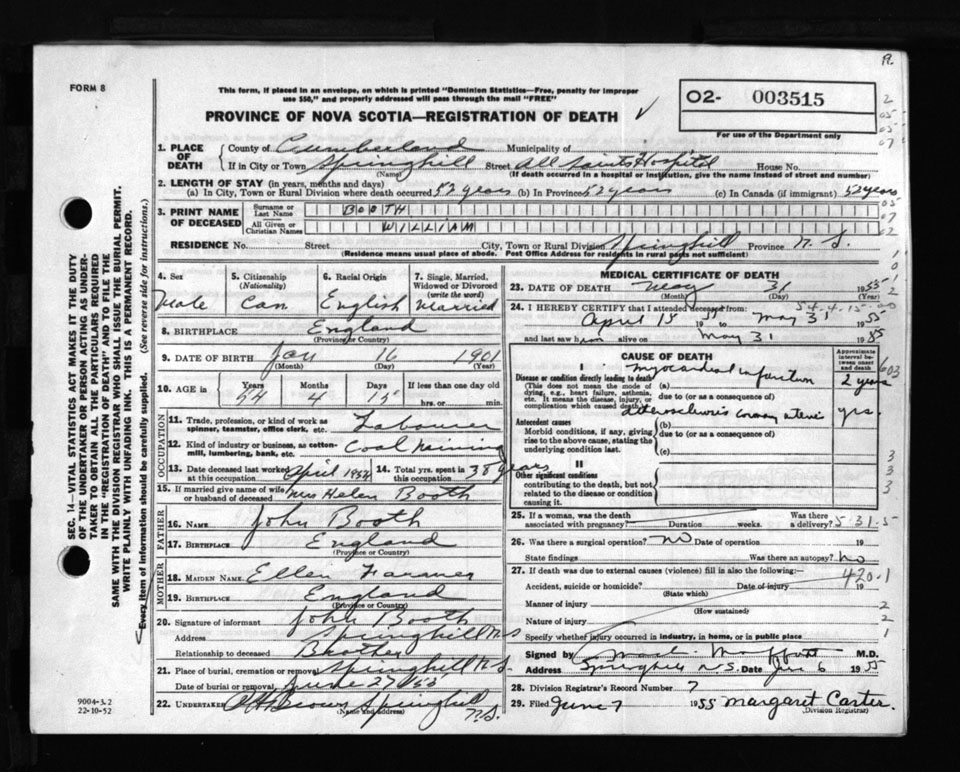 R.
FORM 8
This form, if placed in an envelope, on which is printed "Dominion Statistics—Free, penalty for improper
use $50," and properly addressed will pass through the mail "FREE"
PROVINCE OF NOVA SCOTIA—REGISTRATION OF DEATH ✓
O2- 003515
For use of the Department only
2
05
07
1. PLACE OF DEATH
County of Cumberland Municipality of
If in City or Town Springhill Street All Saints Hospital House No.
(Name) (If death occurred in a hospital or institution, give the name instead of street and number)
2. LENGTH OF STAY (in years, months and days)
(a) In City, Town or Rural Division where death occurred 52 years (b) In Province 52 years (c) In Canada (if immigrant) 52 years
3. PRINT NAME OF DECEASED
Surname or Last Name BOOTH
All Given or Christian Names WILLIAM
RESIDENCE No. Street City, Town or Rural Division Springhill Province N.S.
(Residence means usual place of abode. Post Office Address for residents in rural parts not sufficient)
4. Sex Male
5. Citizenship (Nationality) Can
6. Racial Origin English
7. Single, Married, Widowed or Divorced (write the word) Married
8. BIRTHPLACE England
(Province or Country)
9. DATE OF BIRTH Jan 16 1901
(Month) (Day) (Year)
10. AGE in Years 54 Months 4 Days 15 If less than one day old hrs. or min.
OCCUPATION
11. Trade, profession, or kind of work as spinner, teamster, office clerk, etc. Labourer
12. Kind of industry or business, as cotton-mill, lumbering, bank, etc. Coal Mining
13. Date deceased last worked at this occupation April 1954
14. Total yrs. spent in this occupation 38 years
15. If married give name of wife or husband of deceased Mrs Helen Booth
FATHER
16. NAME John Booth
17. BIRTHPLACE England
(Province or Country)
MOTHER
18. MAIDEN NAME Ellen Farmer
19. BIRTHPLACE England
(Province or Country)
20. Signature of informant John Booth
Address Springhill N S
Relationship to deceased Brother
21. Place of burial, cremation or removal Springhill N.S.
Date of burial or removal June 2
22. UNDERTAKER Brown Springhill
(Name and address) N.S.
MEDICAL CERTIFICATE OF DEATH
23. DATE OF DEATH May 31 1955
(Month) (Day) (Year)
24. I HEREBY CERTIFY that I attended deceased from:
April 15 1955 to May 31 1955
and last saw him alive on May 31 1955
CAUSE OF DEATH
Approximate interval between onset and death
I
Disease or condition directly leading to death
(This does not mean the mode of dying, e.g., heart failure, asthenia, etc. It means the disease, injury, or complication which caused death.)
(a) myocardial infarction 2 years
due to (or as a consequence of)
Antecedent causes
Morbid conditions, if any, giving rise to the above cause, stating the underlying condition last.
(b) yrs.
due to (or as a consequence of)
(c)
II
Other significant conditions
contributing to the death, but not related to the disease or condition causing it.
603
3
3
3
25. If a woman, was the death associated with pregnancy? Duration weeks. Was there a delivery? 5-31-5
26. Was there a surgical operation? No Date of operation 19
State findings Was there an autopsy? No
27. If death was due to external causes (violence) fill in also the following:—
420-1
Accident, suicide or homicide? Date of injury 19
(State which)
Manner of injury
(How sustained)
Nature of injury
Specify whether injury occurred in industry, in home, or in public place
2
2
1
Signed by M.D.
Address Springhill N.S. Date June 6 1955
28. Division Registrar's Record Number 7
29. Filed June 7 1955 Margaret Carter.
(Division Registrar)
SEC. 14—VITAL STATISTICS ACT MAKES IT THE DUTY
OF THE UNDERTAKER OR PERSON ACTING AS UNDER-
TAKER TO OBTAIN ALL THE PARTICULARS REQUIRED
IN THE "REGISTRATION OF DEATH" AND TO FILE THE
SAME WITH THE DIVISION REGISTRAR WHO SHALL ISSUE THE BURIAL PERMIT.
WRITE PLAINLY WITH UNFADING INK. THIS IS A PERMANENT RECORD.
Every item of information should be carefully supplied. (See reverse side for instructions.)
9004-3.2
22-10-52